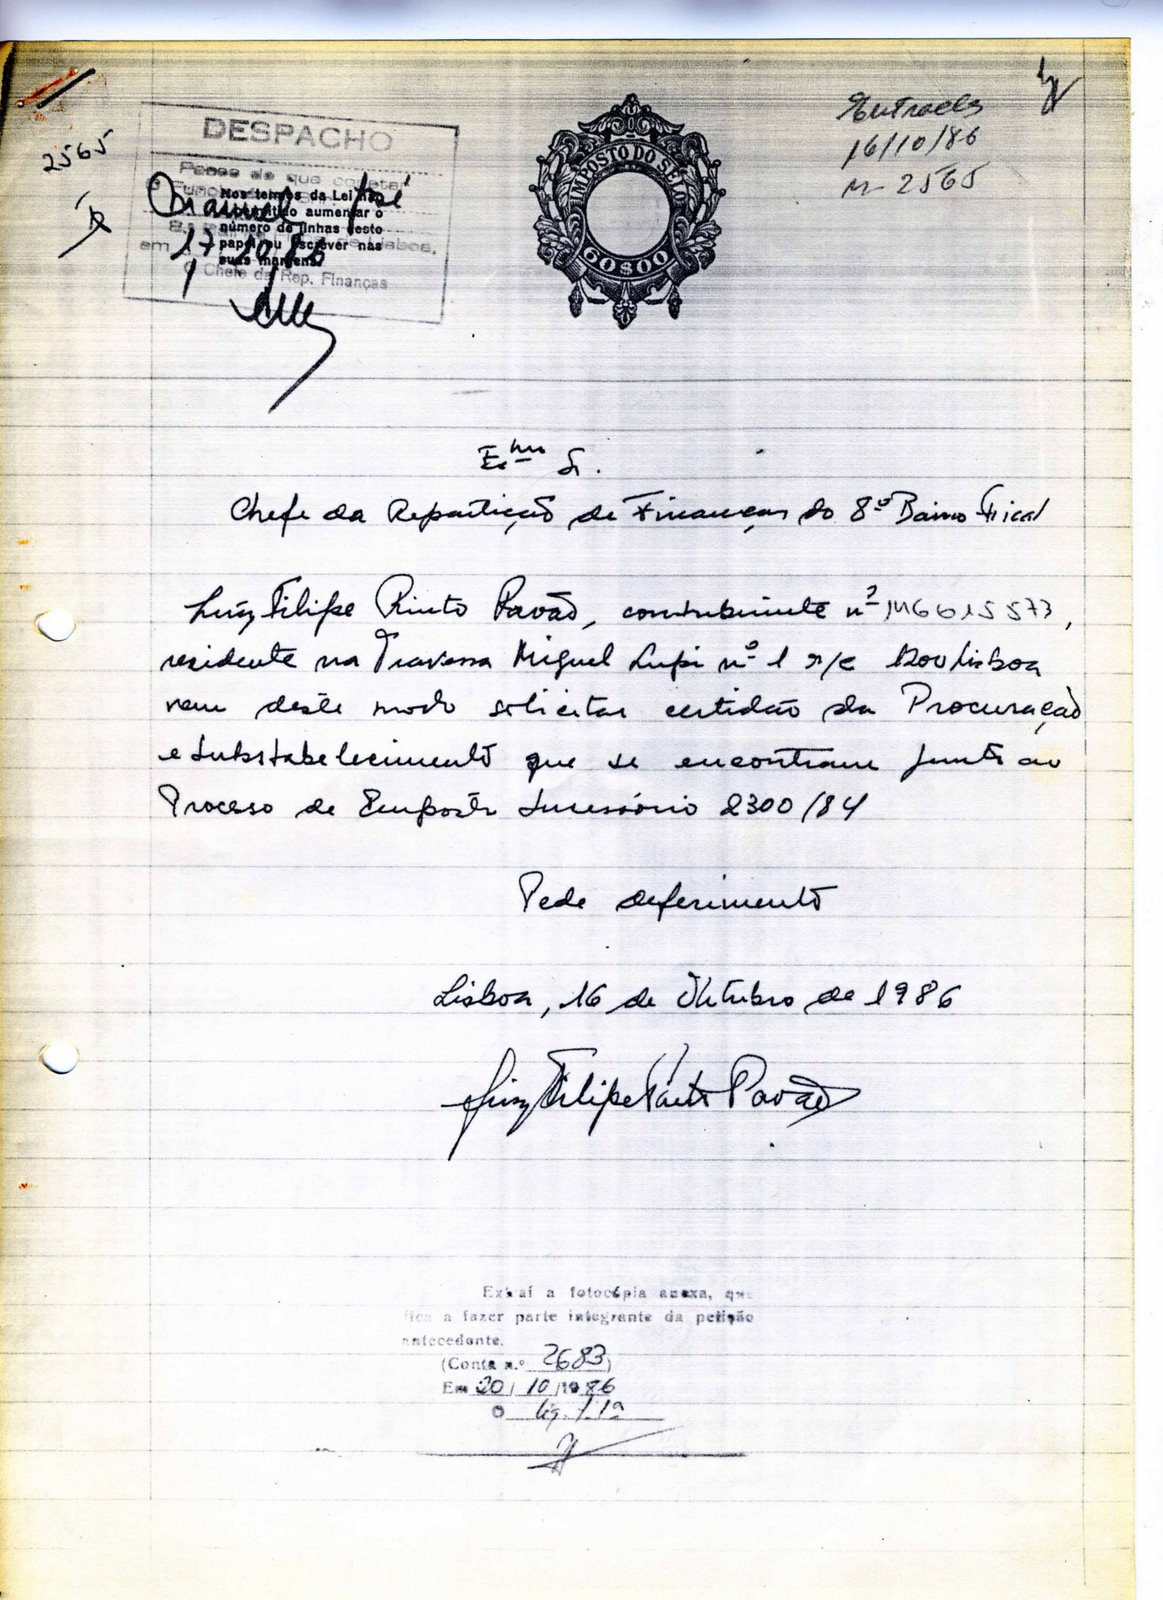 Entrada
16/10/86
nº 2565
2565
DESPACHO
Passe de que constar
Nos termos da Lei não
é permitido aumentar o
número de linhas deste
papel ou escrever nas
suas margens.
em 17/10/86
O Chefe da Rep. Finanças
IMPOSTO DO SELO
60$00
Exmo Sr.
Chefe da Repartição de Finanças do 8º Bairro Fiscal
Luiz Filipe Pinto Pavão, contribuinte nº 146615573,
residente na Travessa Miguel Lupi nº 1 r/c 1200 Lisboa
vem deste modo solicitar certidão da Procuração
e Substabelecimento que se encontram junto ao
Processo de Imposto Sucessório 2300/84
Pede deferimento
Lisboa, 16 de Outubro de 1986
Luiz Filipe Pinto Pavão
Extraí a fotocópia anexa, que
fica a fazer parte integrante da petição
antecedente.
(Conta n.º 2683)
Em 20/10/1986
O